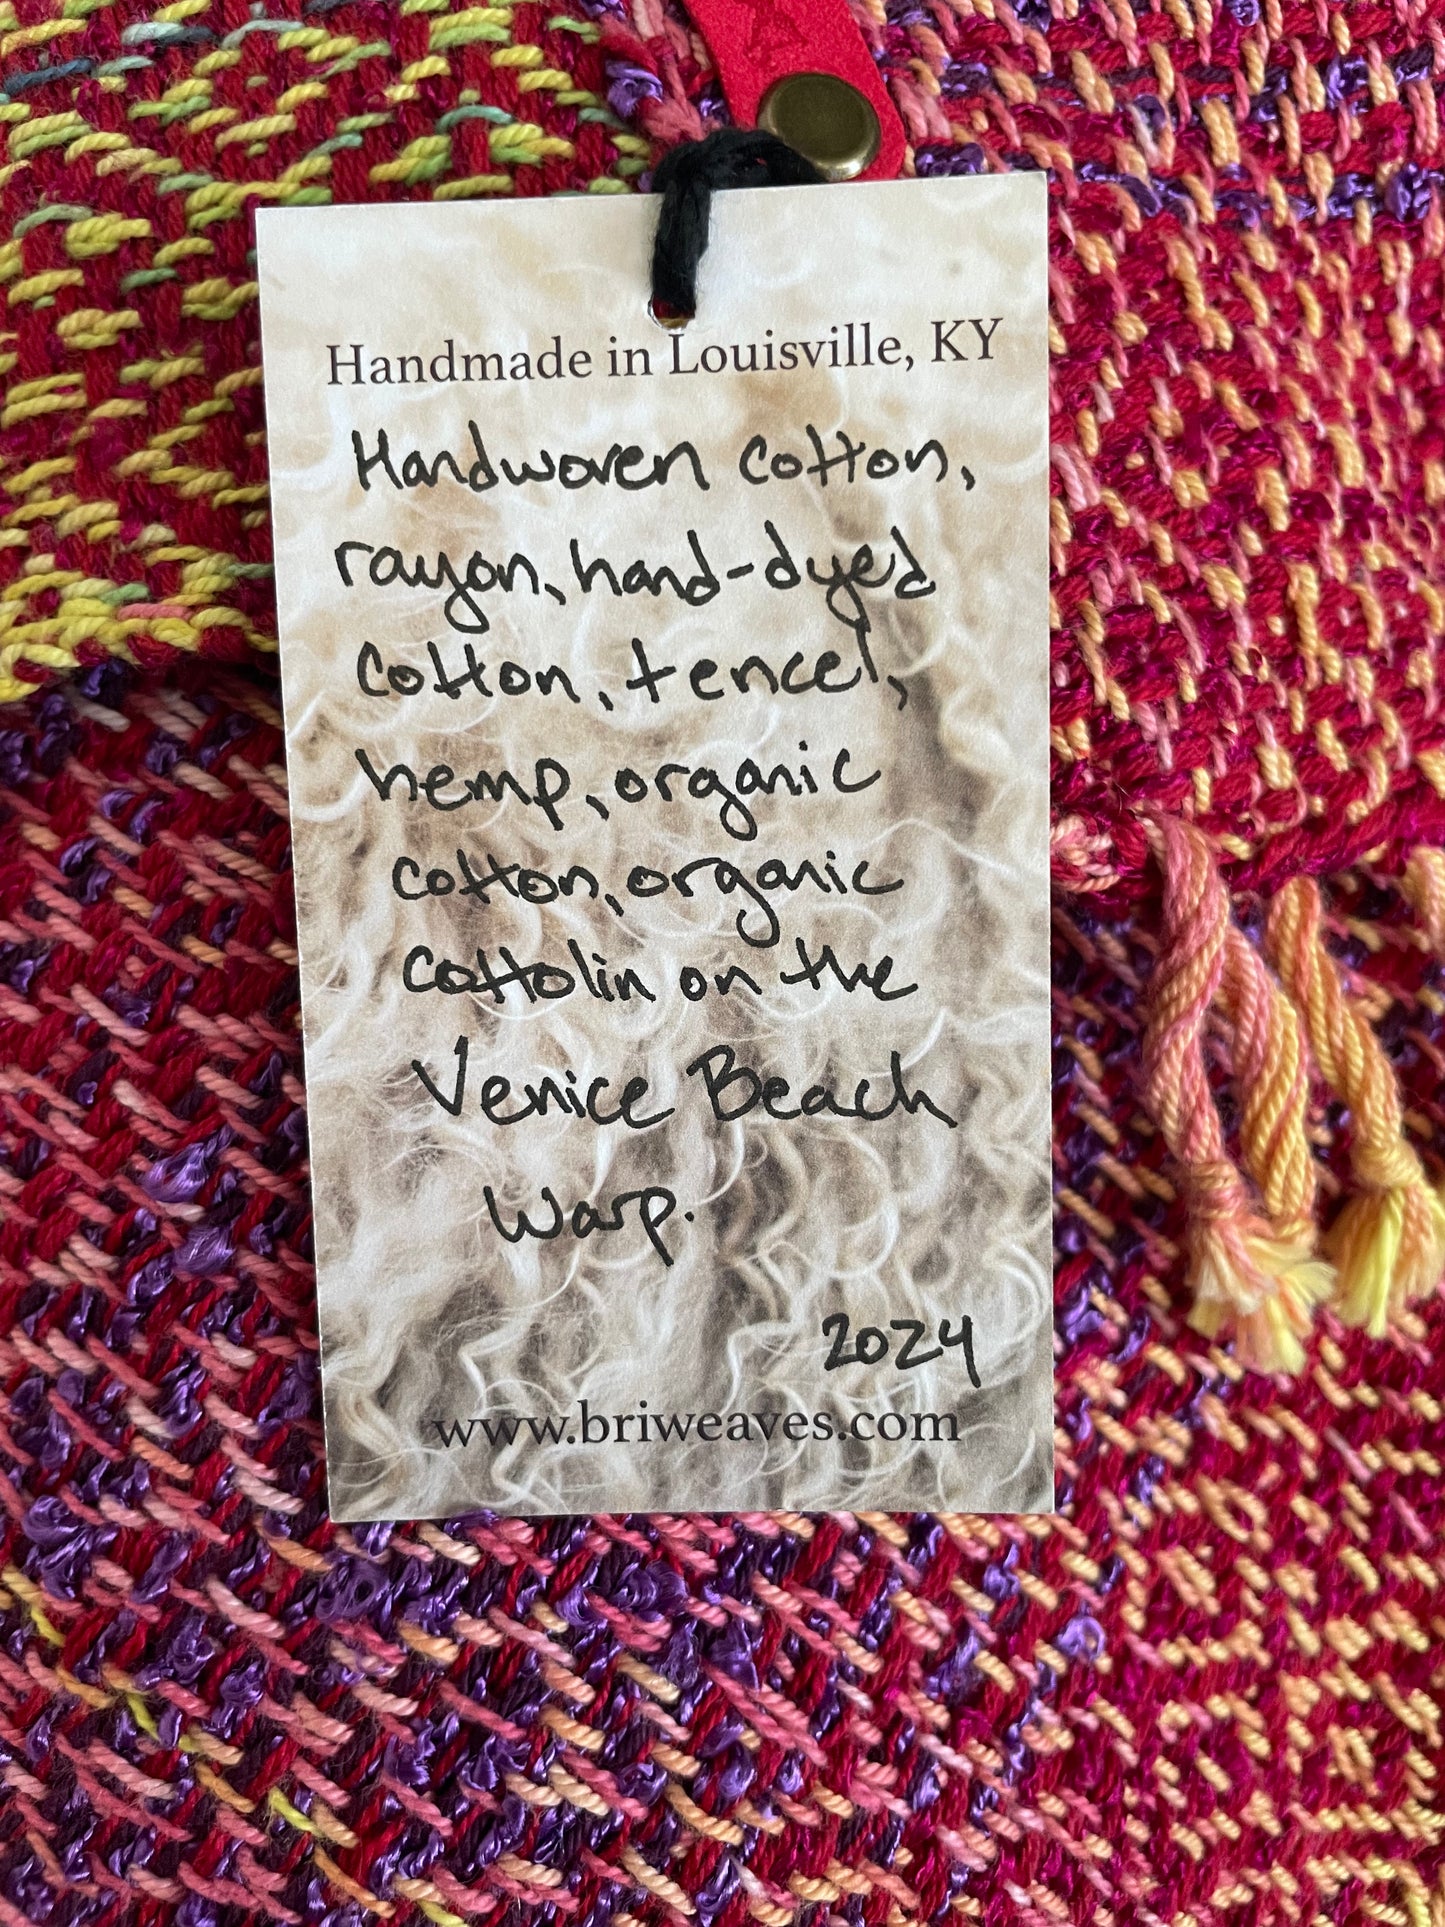 Handmade in Louisville, KY
Handwoven cotton,
rayon, hand-dyed
cotton, tencel,
hemp, organic
cotton, organic
cottolin on the
Venice Beach
Warp.
2024
www.briweaves.com